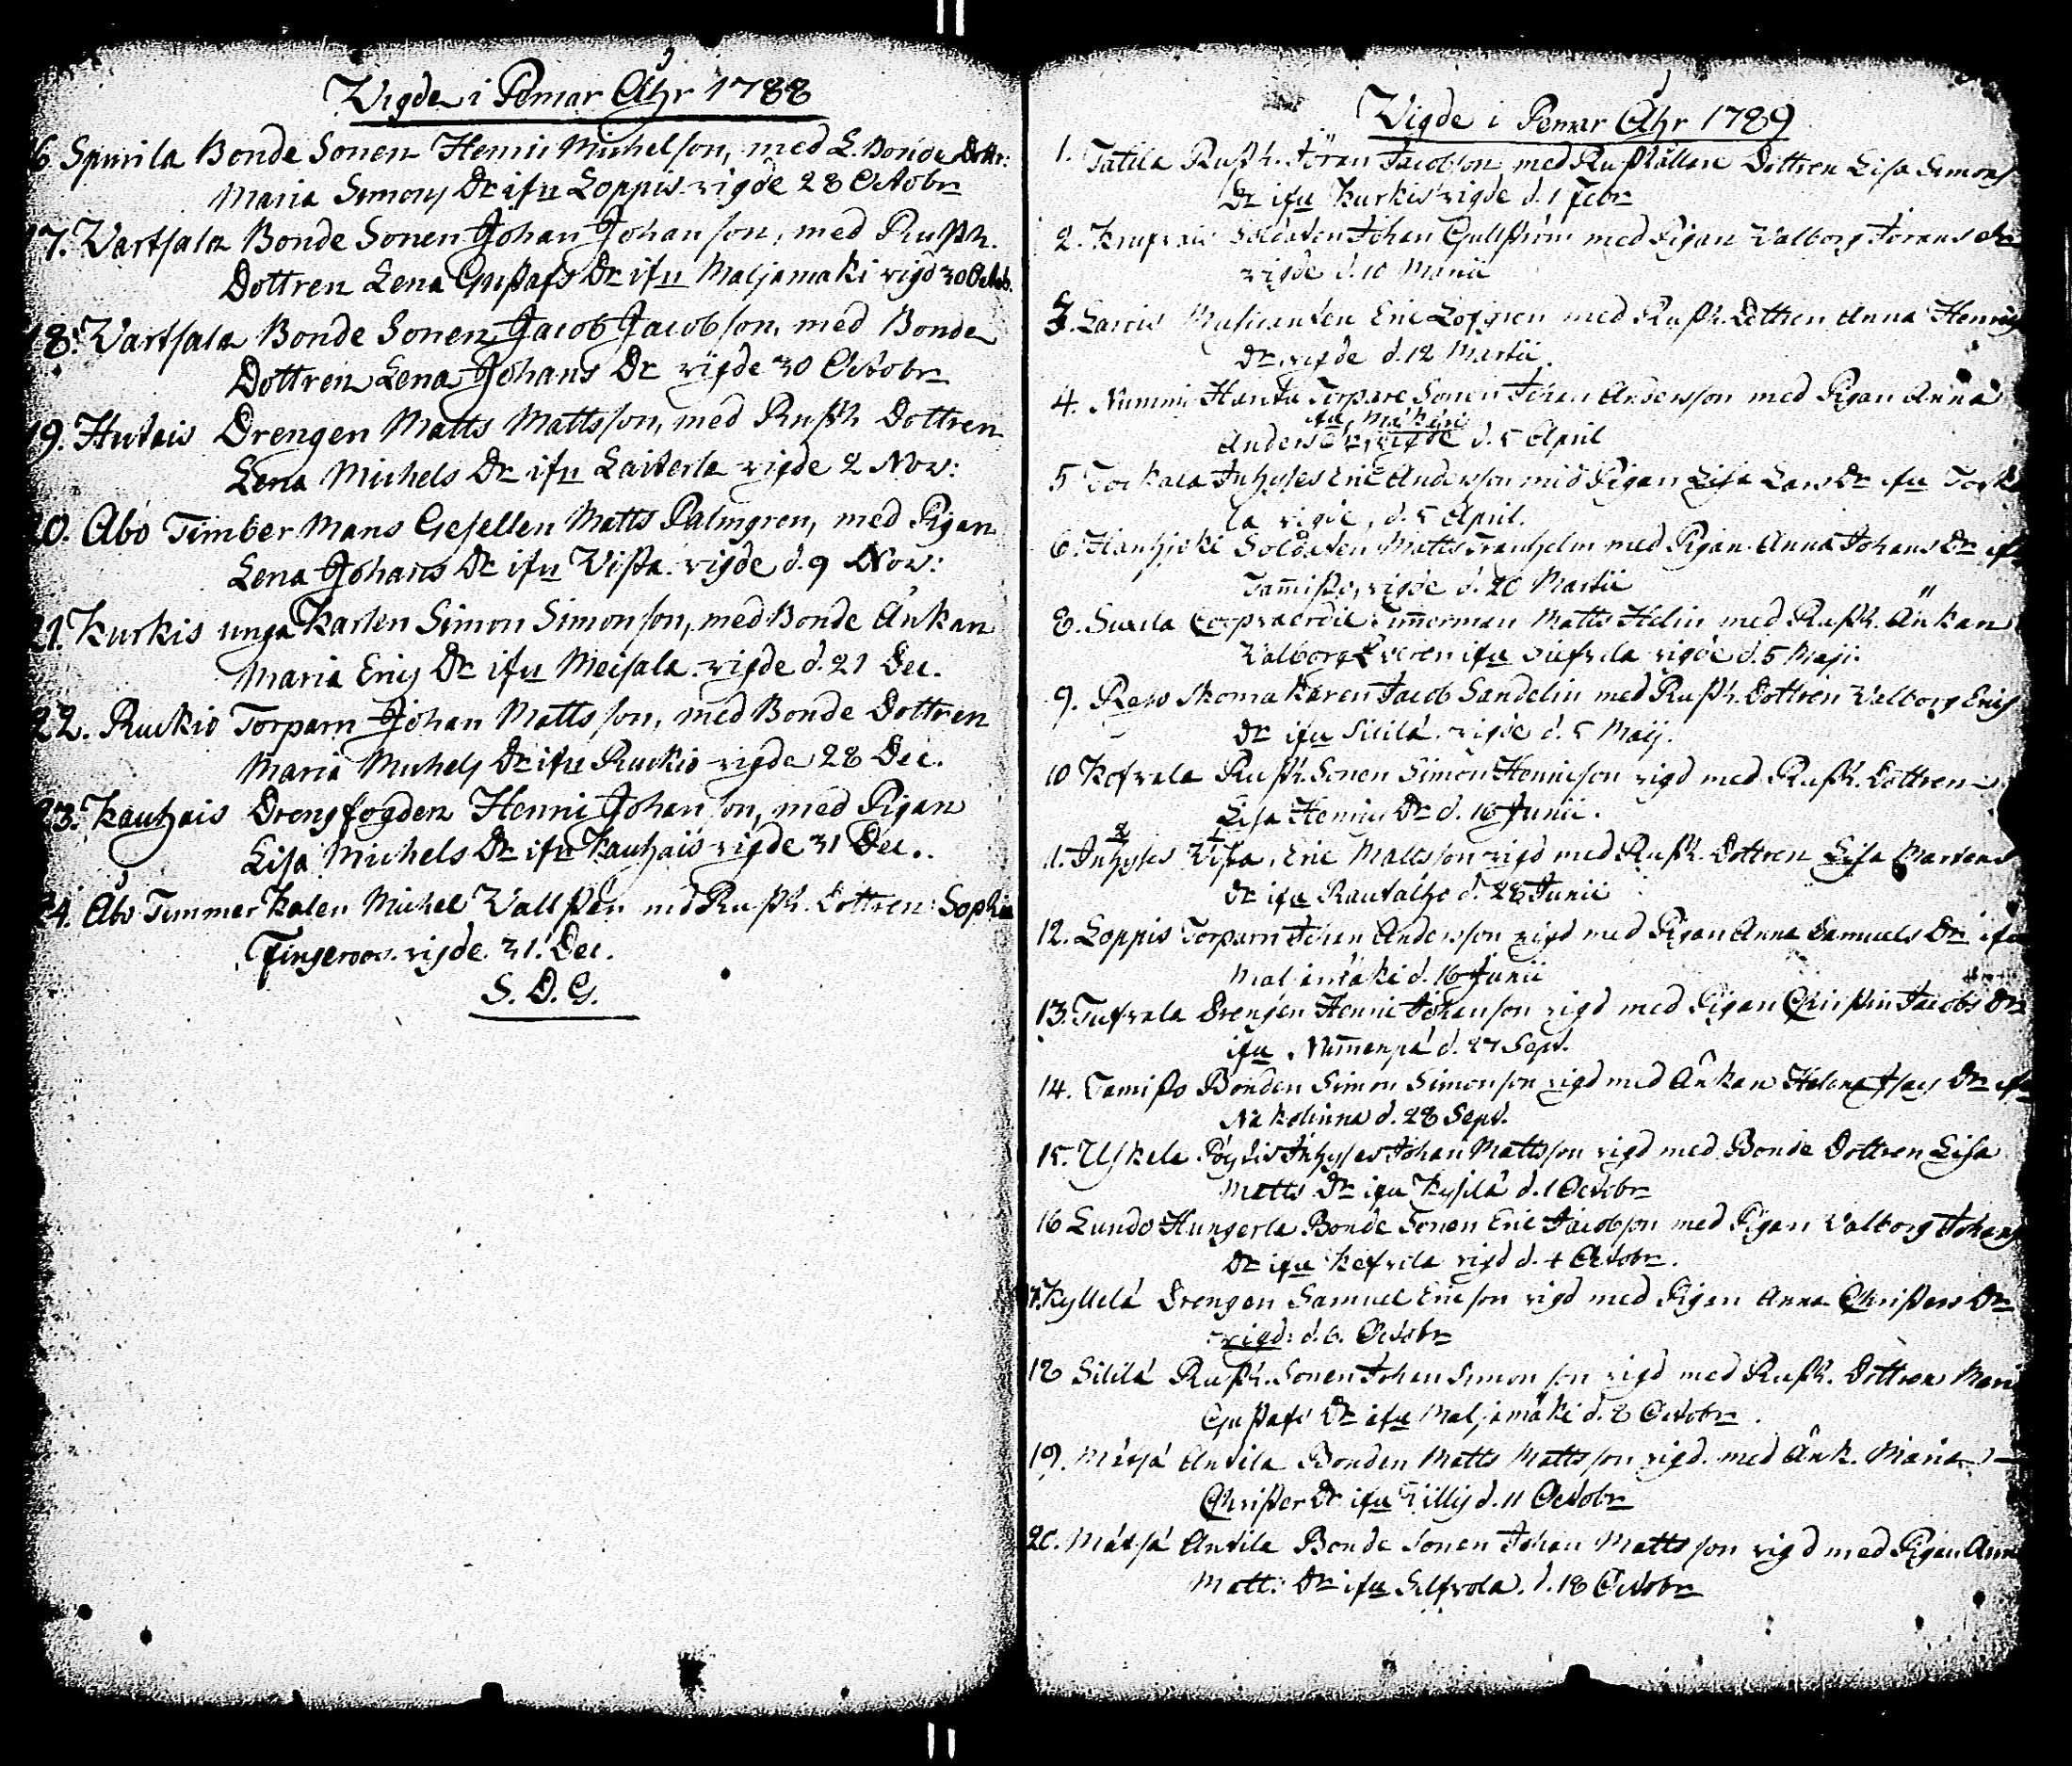 Vigde i Pemar Åhr 1788
6. Spurila Bonde Sonen Henric Michelson, med L. Bonde Dottr:
Maria Simons Dr ifrn Loppis vigde 28 Octobr
17. Vartsala Bonde Sonen Johan Johanson, med Rusth.
Dottren Lena Gustafs Dr ifrn Maljamaki vigd 30 Octob.
18. Vartsala Bonde Sonen Jacob Jacobson, med Bonde
Dottren Lena Johans Dr vigde 30 Octobr
19. Hutais Drengen Matts Mattsson, med Rusth Dottren
Lena Michels Dr ifrn Laiterla vigde 2 Nov:
20. Åbo Timber Mans Gesellen Matts Palmgren, med Pigan
Lena Johans Dr ifrn Vista vigde d. 9 Nov:
21. Kurkis unga Karlen Simon Simonson, med Bonde Änkan
Maria Erics Dr ifrn Meisala vigde d. 21 Dec.
22. Ruckio Torparn Johan Mattsson, med Bonde Dottren
Maria Michels Dr ifrn Ruckio vigde 28 Dec.
23. Kauhais Drengfogden Henric Johanson, med Pigan
Lisa Michels Dr ifrn Kauhais vigde 31 Dec.
24. Åbo Timmer Kalen Michel Vallsten med Rusth. Dottren Sophia
Fingeroos vigde 31. Dec.
S. D. G.
Vigde i Pemar Åhr 1789
1. Tatila Rusth. Jöran Jacobson med Rusthållare Dottren Lisa Simons
Dr ifrn Kurkis vigde d. 1 Febr
2. Soldaten Johan Gullström med Pigan Valborg Jörans dr
vigde d. 10 Martii
3. Musicanten Eric Löfgren med Rusth. Dottren Anna Henrics
Dr vigde d. 12 Martii.
4. Nummi Hanka Torpare Sonen Johan Andersson med Pigan Anna
Anders Dr, vigde d. 5 April
5 Tockala Inhyses Eric Andersson med Pigan Lisa Lars Dr ifrn Tocka
la vigde, d. 5 April.
6. Soldaten Matts Franhelm med Pigan Anna Johans Dr ifr
Tam̄isto, vigde d. 20 Martii
8. Timmerman Matts Helin med Rusth. Änkan
Valborg ifrn vigde d. 5 Maji.
9. Reso Skomakaren Jacob Sandelin med Rusth. Dottren Valborg Erics
Dr ifrn Sililä vigde d. 5 Maij.
10 Kefvala Rusth. Sonen Simon Henricson vigd med Rusth. Dottren
Lisa Henrics Dr d. 16 Junii.
11. Inhyses Vista, Eric Mattsson vigd med Rusth. Dottren Lisa Mortens
Dr ifrn Rautalho d. 28 Junii
12. Loppis Torparn Johan Andersson vigd med Pigan Anna Samuels Dr ifrn
Maljamäki d. 16 Junii
13. Tufvala Drengen Henric Johanson vigd med Pigan Christin Jacobs Dr
ifrn Num̄enpä d. 27 Sept.
14. Tamisto Bonden Simon Simonson vigd med Änkan Helena Isacs Dr ifr
Nakolinna d. 28 Sept.
15. Uskela Inhyses Johan Mattsson vigd med Bonde Dottren Lisa
Matts Dr ifrn Kysilä d. 1 Octobr
16 Lundo Hungerla Bonde Sonen Eric Jacobson med Pigan Valborg Johans
Dr ifrn Kefvala vigd d. 4 Octobr.
17. Kyllelä Drengen Samuel Ericson vigd med Pigan Anna Christers Dr
vigd: d. 6. Octobr
18 Sililä Rusth. Sonen Johan Simonson vigd med Rusth. Dottren Mari
Gustafs Dr ifrn Maljamäki d. 8 Octobr.
19. Mätsä Antila Bonden Matts Mattsson vigd. med Änk. Maria
Christer Dr ifrn Villis d. 11 Octobr
20. Mätsä Antila Bonde Sonen Johan Mattsson vigd med Pigan Anna
Matts Dr ifrn d. 18 Octobr